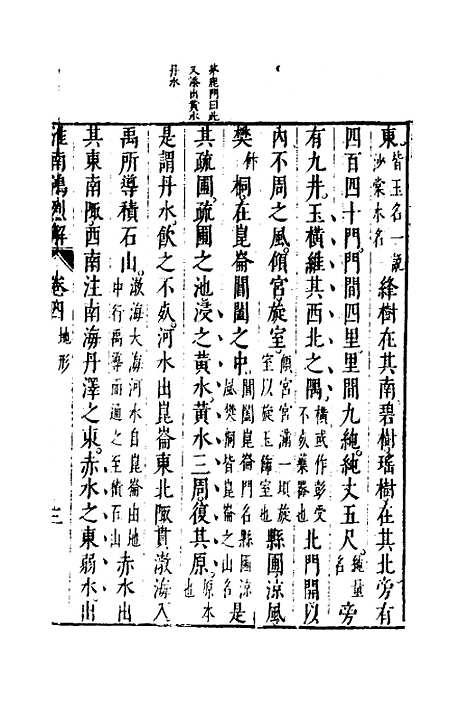 茅鹿門曰此
又湊出黃水
丹水
東皆玉名一說沙棠木名絳樹在其南碧樹瑤樹在其北旁有
四百四十門門間四里里間九純純丈五尺純量名旁
有九井玉橫維其西北之隅橫或作彭受不死藥器也北門開以
內不周之風傾宮旋室傾宮宮滿一頃旋室以旋玉飾室也縣圃涼風
樊桐在崑崙閶闔之中閶闔崑崙門名縣圃涼風樊桐皆崑崙之山名是
其疏圃疏圃之池浸之黃水黃水三周復其原原本也
是謂丹水飲之不死河水出崑崙東北陬貫渤海入
禹所導積石山渤海大海河水自崑崙由地中行禹導而通之至積石山赤水出
其東南陬西南注南海丹澤之東赤水之東弱水出
淮南鴻烈解 卷四 地形